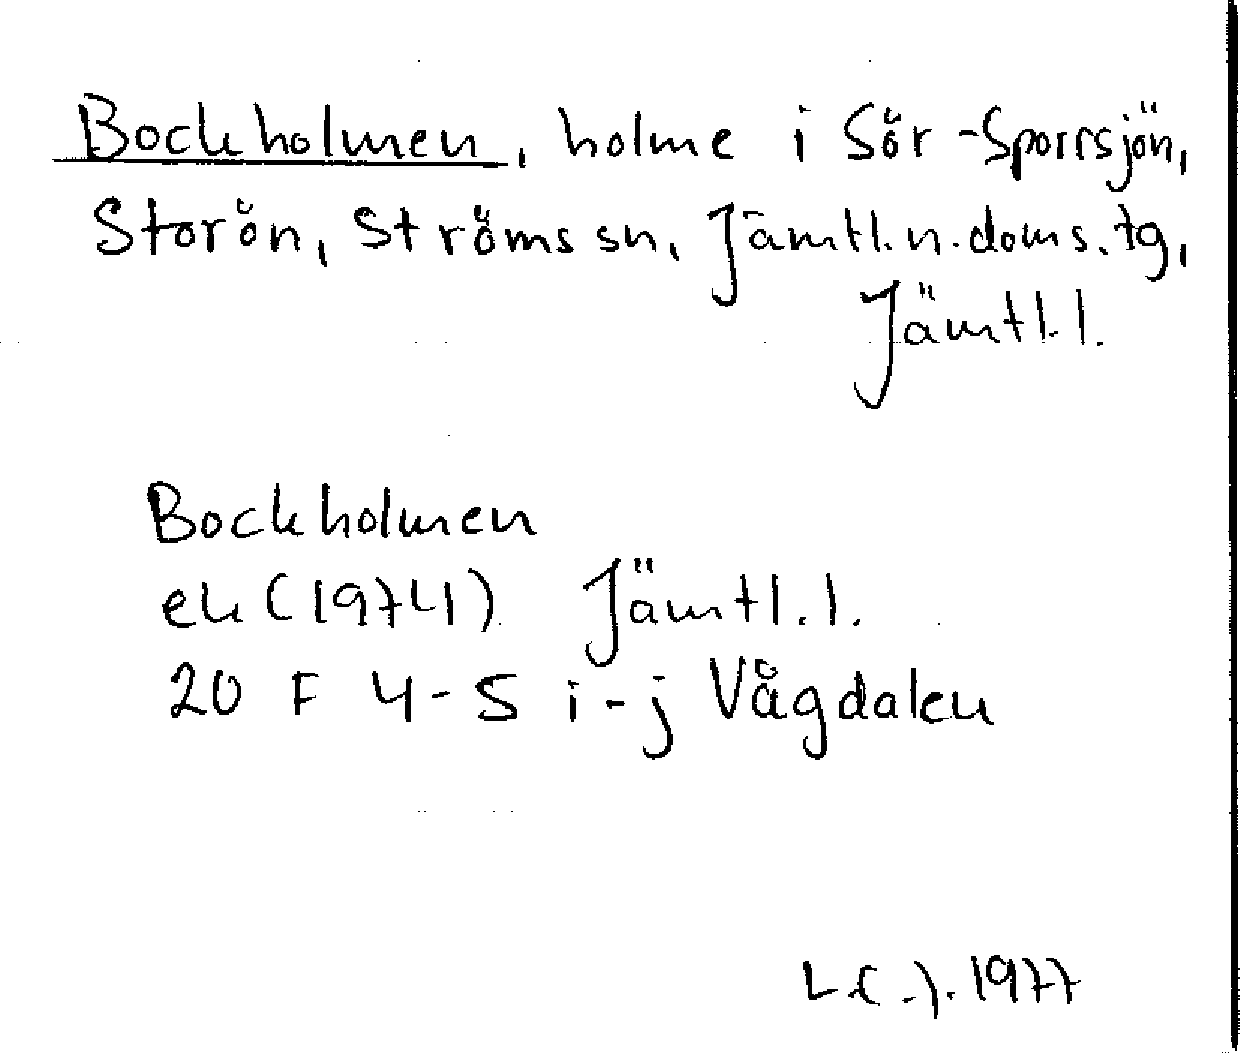 Bockholmen, holme i Sör-Sporrsjön,
Storön, Ströms sn, Jämtl.n.doms.tg,
Jämtl.l.
Bockholmen
ek (1974) Jämtl.l.
20 F 4-5 i-j Vågdalen
1977